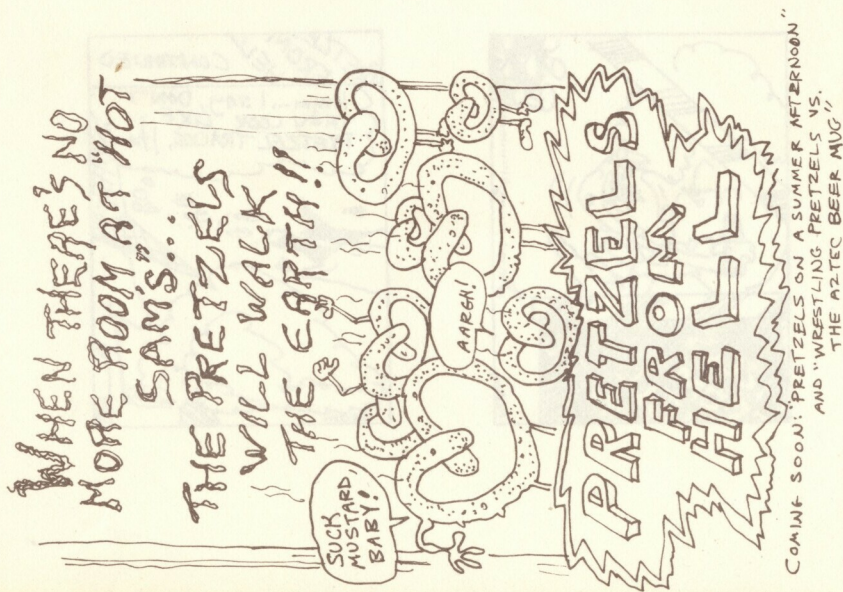 WHEN THERE'S NO
MORE ROOM AT "HOT
SAM'S"...
THE PRETZELS
WILL WALK
THE EARTH!!
SUCK
MUSTARD
BABY!
AARGH!
PRETZELS
FROM
HELL
COMING SOON: "PRETZELS ON A SUMMER AFTERNOON"
AND "WRESTLING PRETZELS VS.
THE AZTEC BEER MUG"